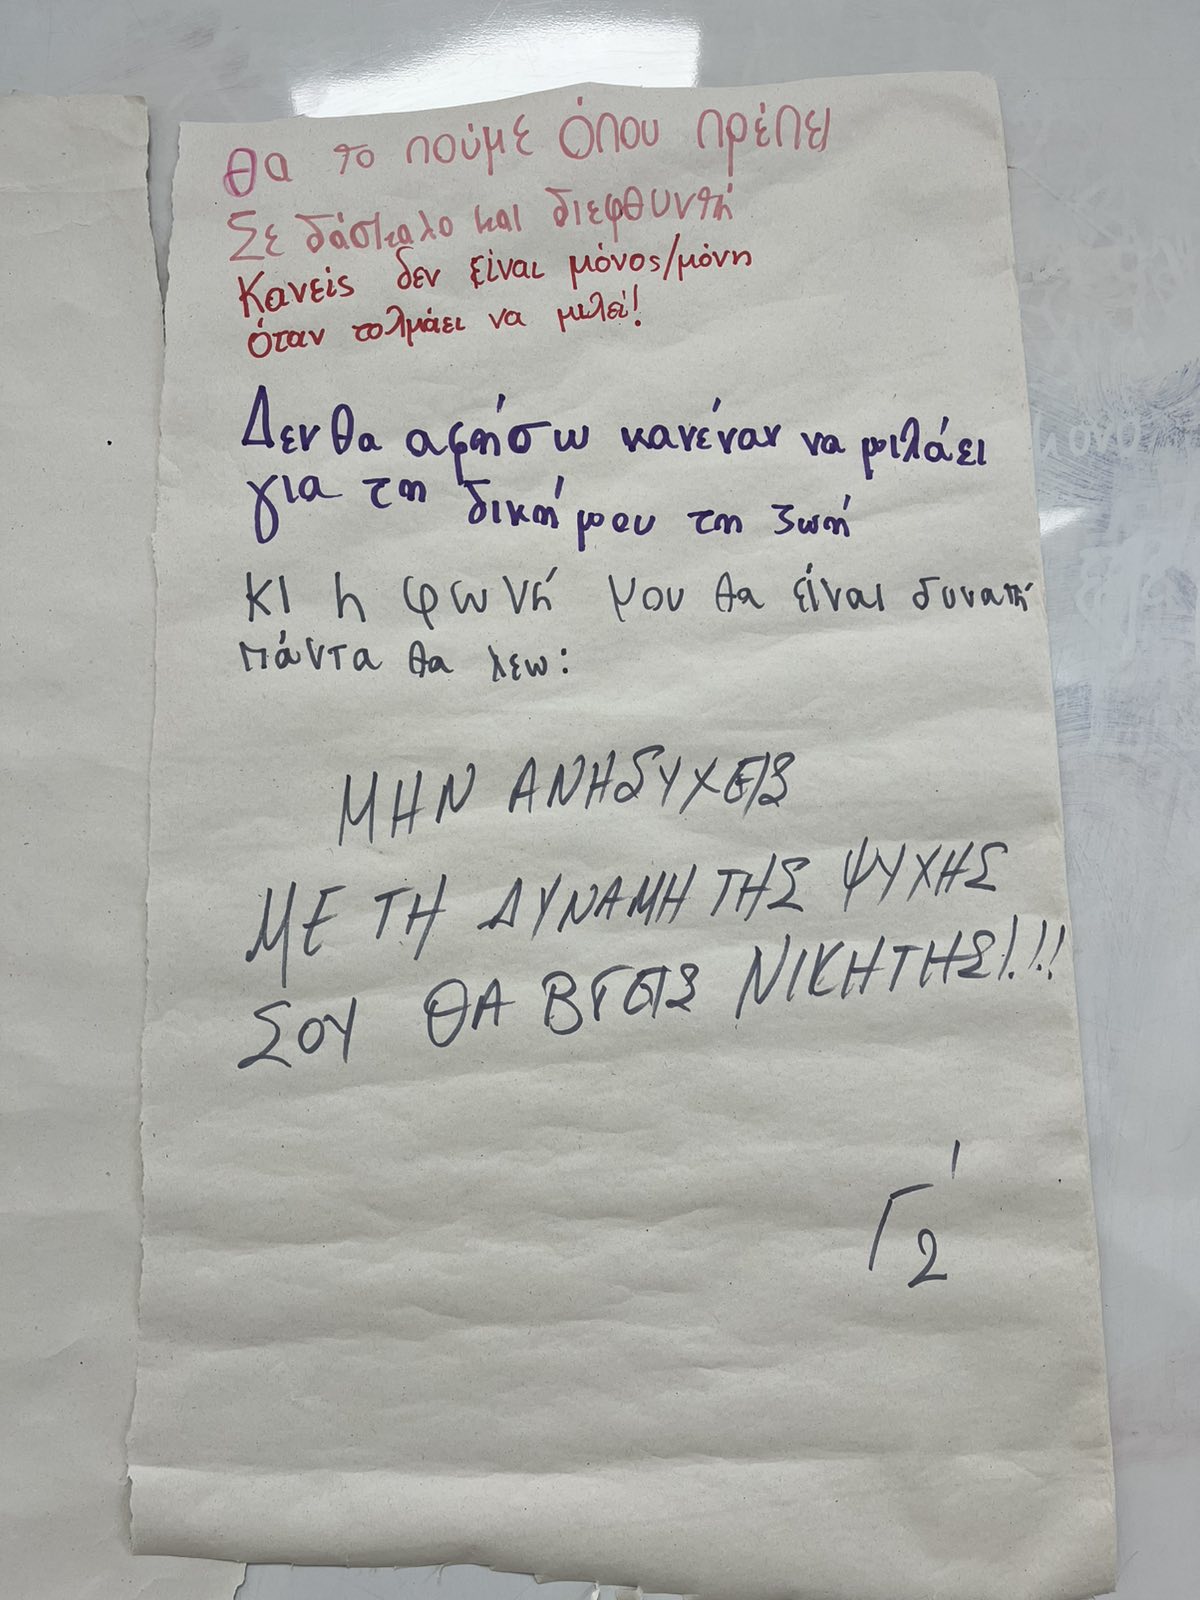 Θα το πούμε όπου πρέπει
Σε δάσκαλο και διεφθυντή
Κανείς δεν είναι μόνος/μόνη
όταν τολμάει να μιλεί!
Δεν θα αφήσω κανέναν να μιλάει
για τη δική μου τη ζωή
κι η φωνή μου θα είναι δυνατή
πάντα θα λεω:
ΜΗΝ ΑΝΗΣΥΧΕΙΣ
ΜΕ ΤΗ ΔΥΝΑΜΗ ΤΗΣ ΨΥΧΗΣ
ΣΟΥ ΘΑ ΒΓΕΙΣ ΝΙΚΗΤΗΣ!!!
Γ'2